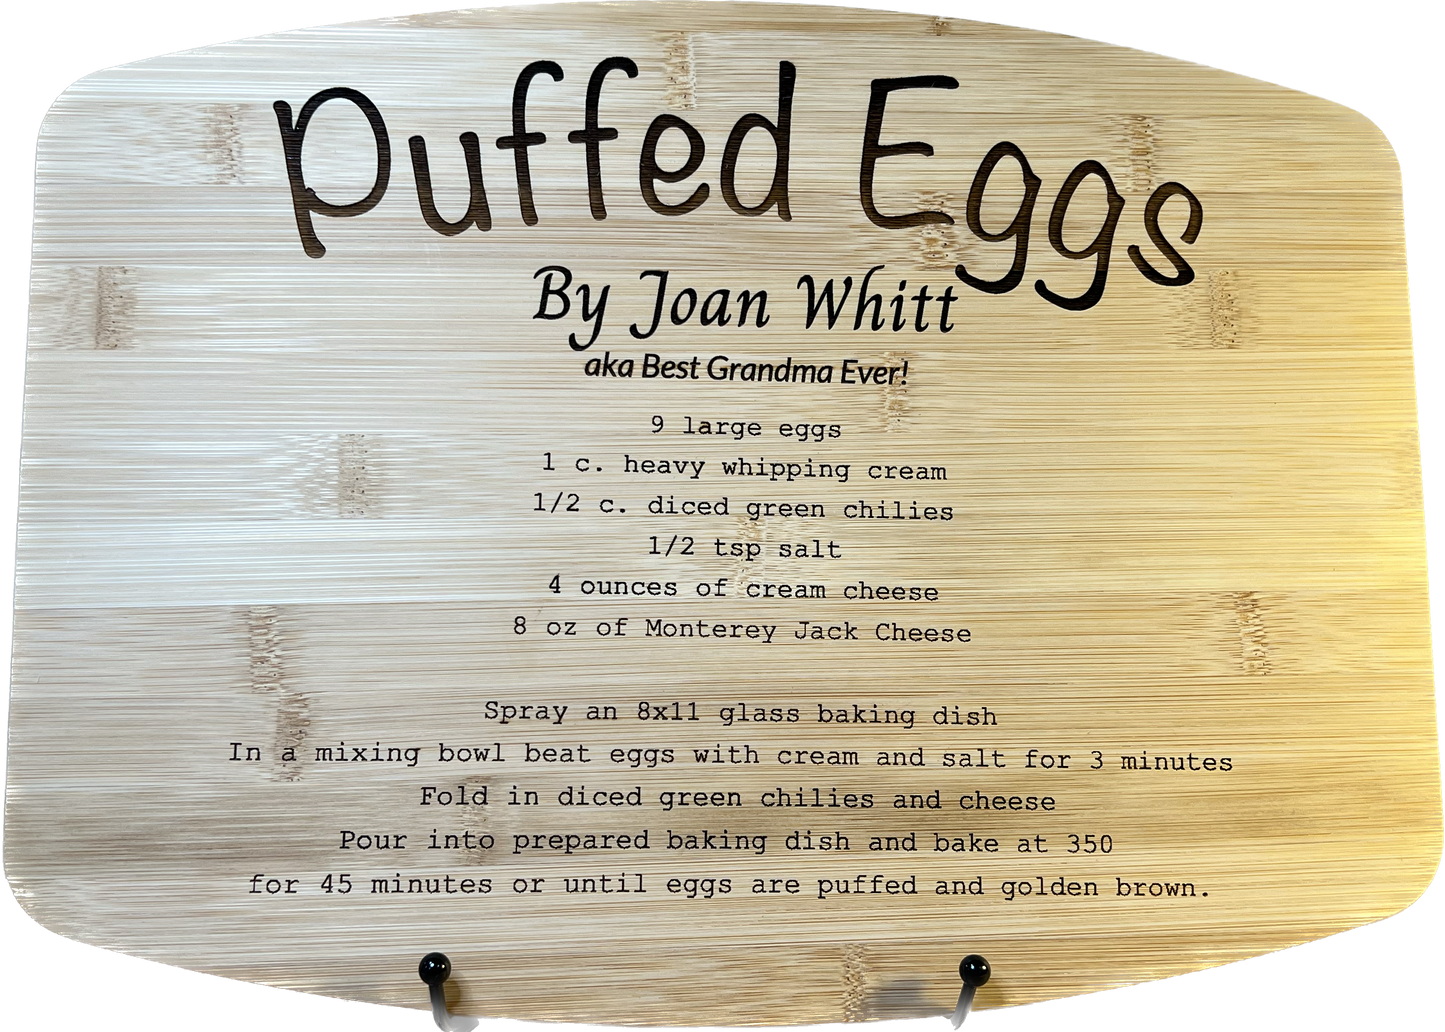 Puffed Eggs
By Joan Whitt
aka Best Grandma Ever!
9 large eggs
1 c. heavy whipping cream
1/2 c. diced green chilies
1/2 tsp salt
4 ounces of cream cheese
8 oz of Monterey Jack Cheese
Spray an 8x11 glass baking dish
In a mixing bowl beat eggs with cream and salt for 3 minutes
Fold in diced green chilies and cheese
Pour into prepared baking dish and bake at 350
for 45 minutes or until eggs are puffed and golden brown.